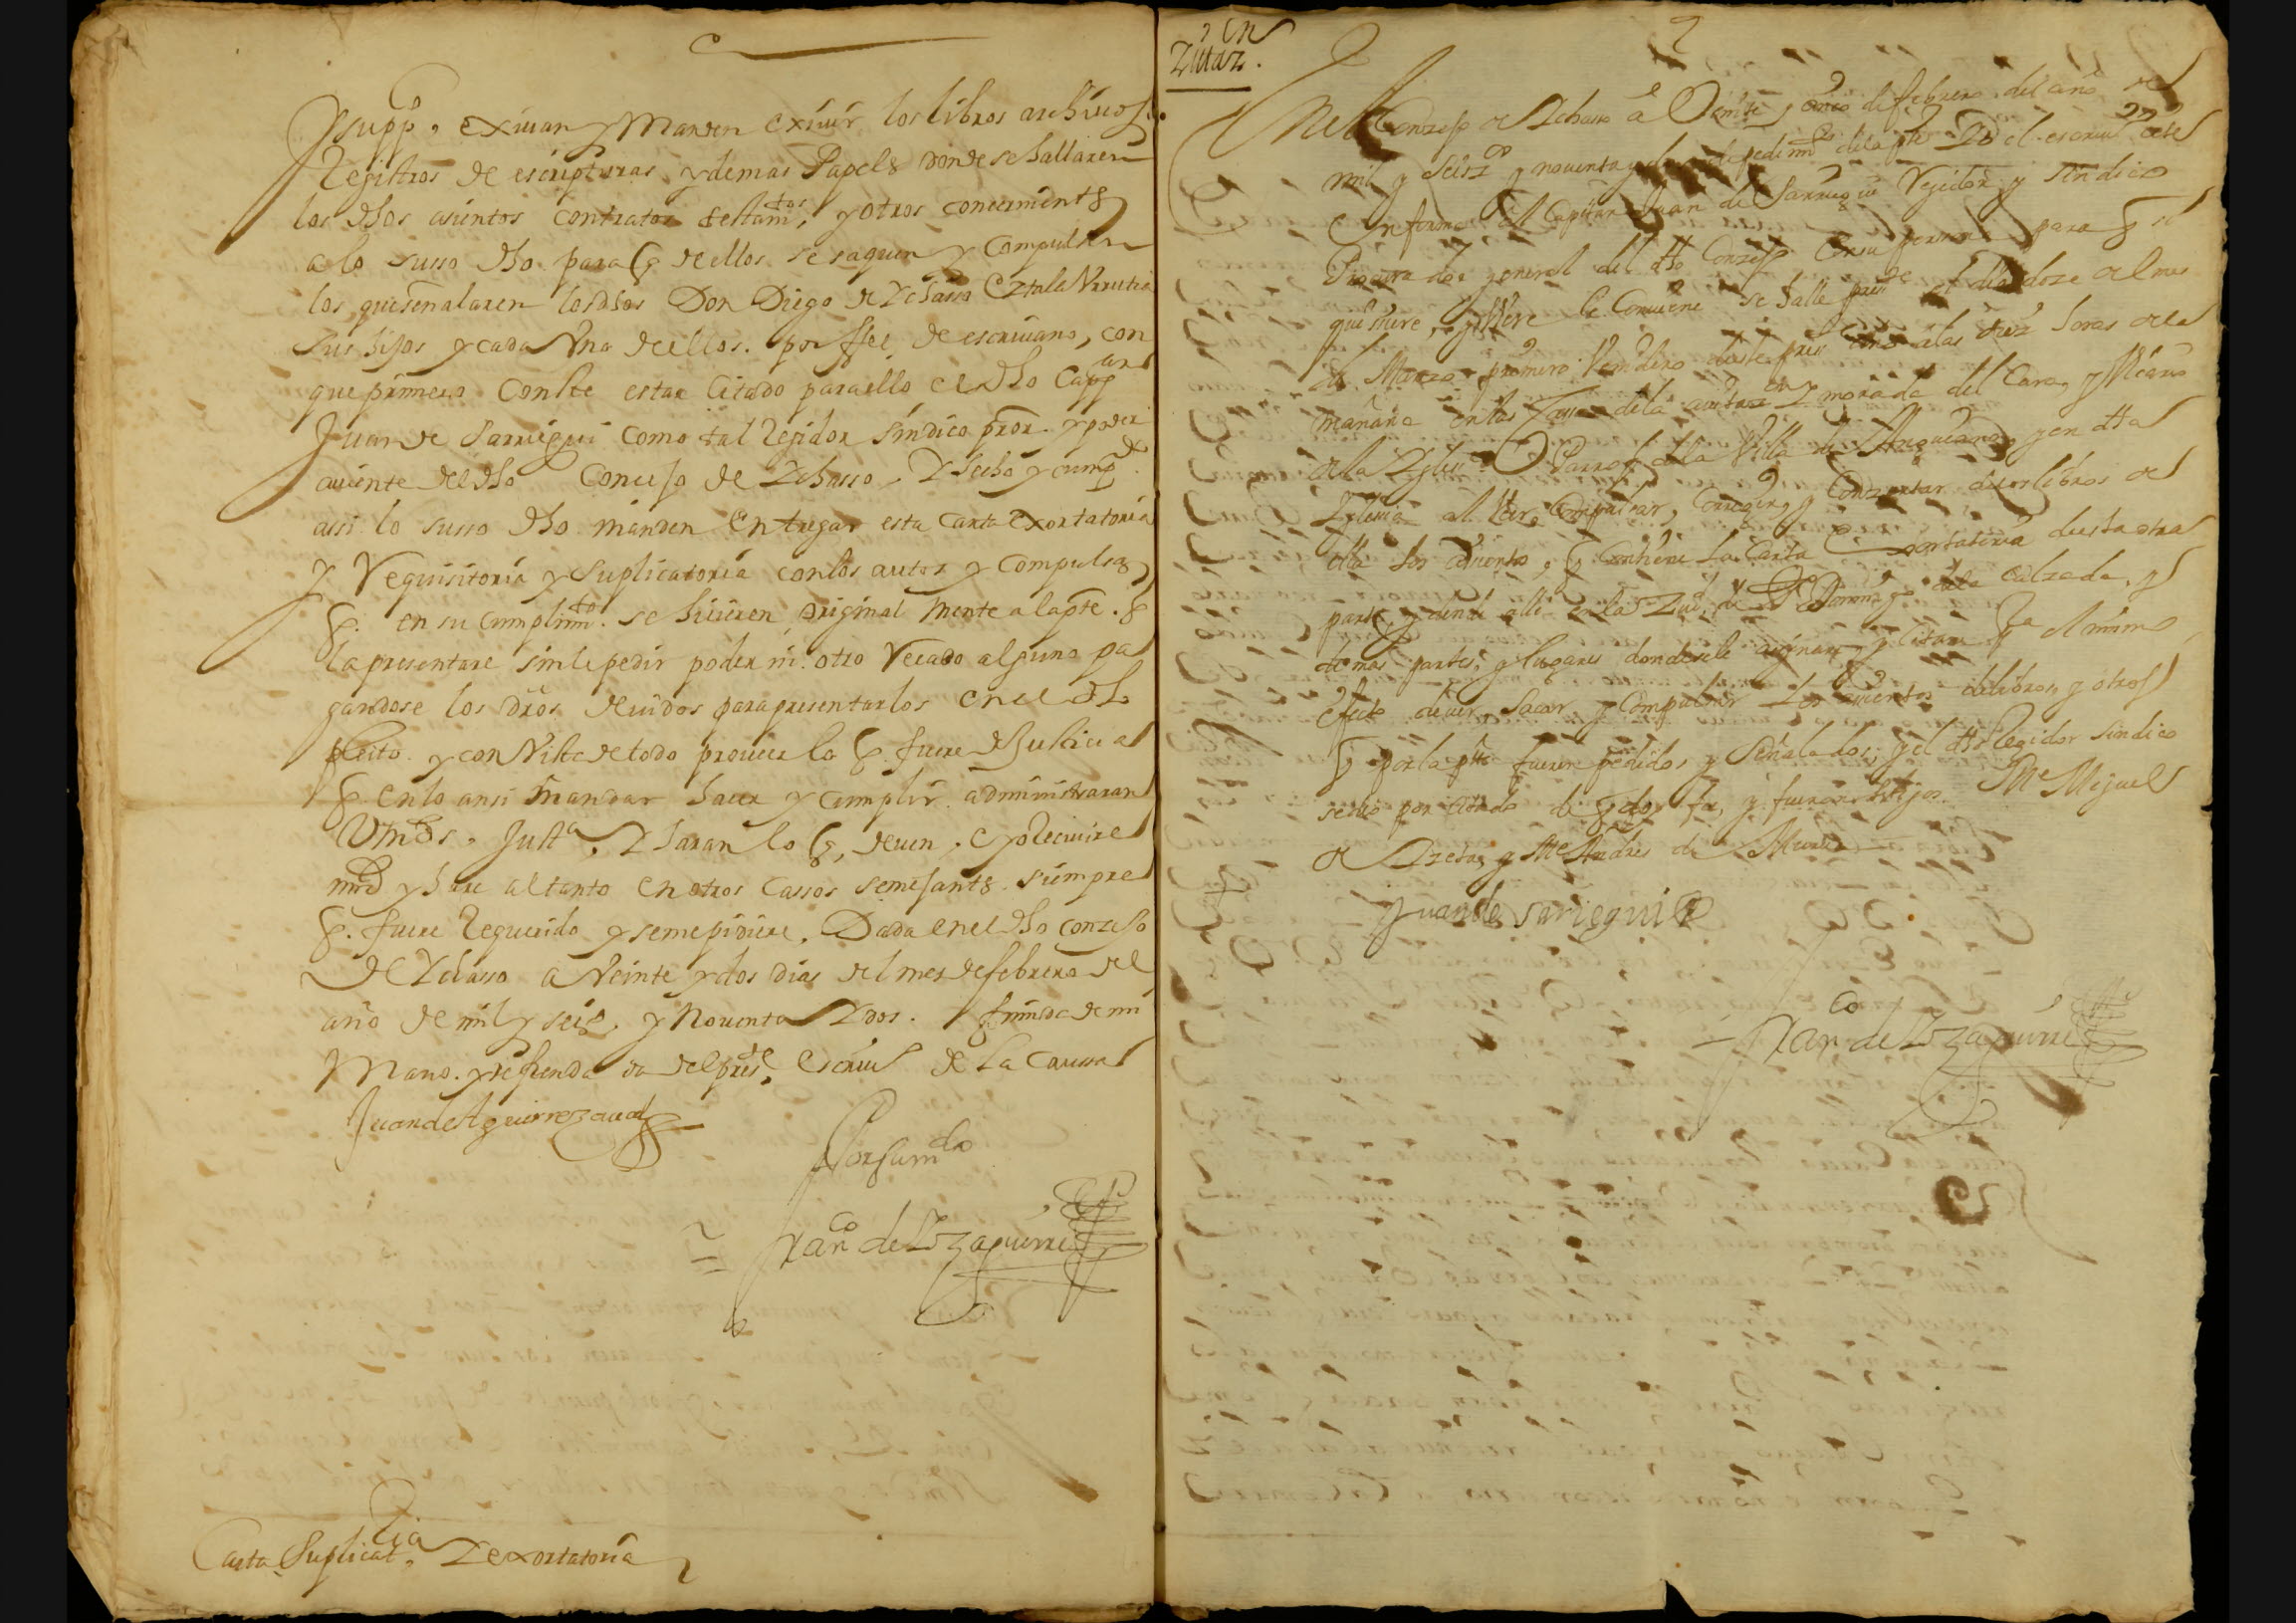 Ysupp, exivan y Manden exivir los libros archivos
Registros de escripturas y demas Papels donde se hallaren
los dhos asientos contratos testamtos, y otros concernients
a lo susso dho para q de ellos se saquen y Compulsen
los que señalaren los dhos Don Diego de Ichasso
sus hijos y cada Uno de ellos. por ffee de escrivano, con
que primero Conste estar Citado para ello el dho Cappan
Juan de Sarriegui como tal Regidor síndico pror. y poder
aviente del dho Concejo de Ichasso. Y hecho y cumpdo
assi lo susso dho manden Entregar esta Carta exortatoria
Y Requisitoria y Suplicatoria con los autos y Compulsas
q. en su cumplimto. se hicieren original mente a la pte. q
la presentare sin le pedir poder ni otro Recado alguno pa
gandose los dros devidos para presentarlos en el dho
pleito. y con Vista de todo proveer lo q. fuere de Justicia
q. en lo ansi mandar hacer y cumplir administraran
Vmds. Justa, Y haran lo q, deven, e yo Recivire
mrd y hare al tanto en otros Cassos semejants. siempre
q. fuere Requerido y se me pidiere. Dada en el dho conzejo
de Ichasso a Veinte y dos dias del mes de febrero del
año de mil y seisº. y Noventa Y dos. firmada de mi
Mano. y refrenda da del preste escrivº de la Caussa
Juan de Aguirrezaval
Por su mdo
Franco de Yzaguirre
Carta Suplicatria Y exortatoria
Zitaz.on
En el Conzejo de Ichasso a Veinte y cinco de febrero del año de
mil y seisztos y noventa y dos de pedimto de la pte Yo el escrivno cite
En forma al Capitan Juan de Sarriegui Regidor y sindico
Procurador general del dho Conzejo en su persona para q si
quisiere, y Viere le Conviene se halle preste el dia doze del mes
de Marzo primero Venidero deste preste año a las diez horas de la
mañana en las Cassas de la avitazon Y morada del Cura, y Vicario
de la Yglesia Parrochl de la Villa de y en dha
Yglesia al Ver, Compulsar, Corregir y Conzertar de los libros de
ella los asientos, q Contiene la Carta Exortatoria desta otra
parte, y dende alli en la Ziud de Sto Domingo de la Calzada, y
demas partes, y lugares donde se le asignare, y Citare pa el mismo
efecto de ver, Sacar, y Compulsar los asientos de libros, y otros
q por la pte fueren pedidos y Señalados; y el dho Regidor sindico
se dio por Citado de q doy fee, y fueron testigos Me Miguel
de y Me Andres de
Juan de sariegui
Franco de Yzaguirre